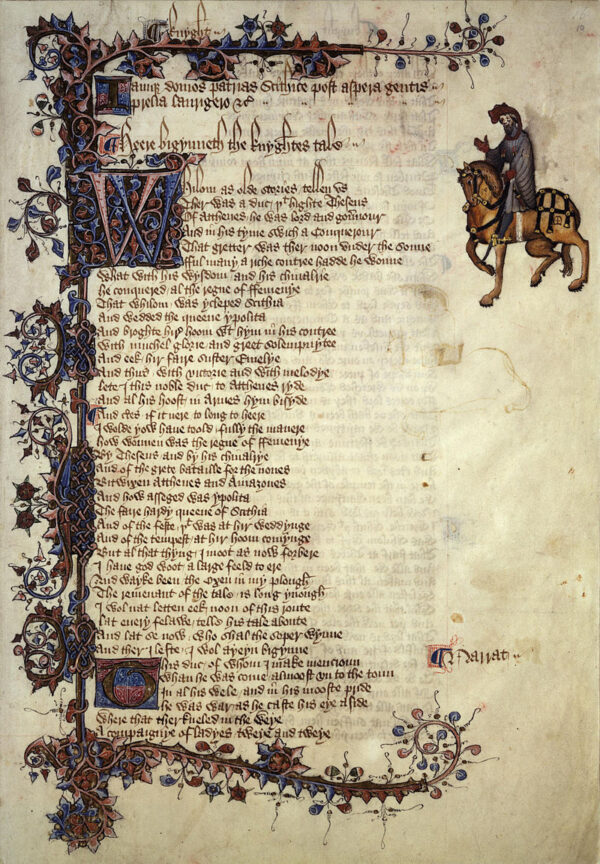 knyght
Iamqʒ domos patrias Scithice post aspera gentis
prelia laurigero &c
Heere bigynneth the knyghtes tale
Whilom as olde stories tellen vs
Ther was a duc þᵗ highte Theseus
Of Atthenes he was lord and gouernour
And in his tyme swich a Conquerour
That gretter was ther noon vnder the sonne
fful many a riche contree hadde he wonne
What with his wysdom and his chiualrie
He conquered al the regne of ffemenye
That whilom was ycleped Scithia
And wedded the queene ypolita
And broghte hir hoom wᵗ hym in his contree
With muchel glorie and greet solempnytee
And eek hir faire suster Emelye
And thus with victorie and with melodye
Lete I this noble duc to Atthenes ryde
And al his hoost in Armes hym bisyde
And certes if it nere to long to heere
I wolde yow haue toold fully the manere
How wonnen was the regne of ffemenye
By Theseus and by his chiualrye
And of the grete bataille for the nones
Bitwixen Atthenes and Amazones
And how asseged was ypolita
The faire hardy queene of Scithia
And of the feste þᵗ was at hir weddynge
And of the tempest at hir hoom comynge
But al that thyng I moot as now forbere
I haue god woot a large feeld to ere
And wayke been the Oxen in my plough
The remenant of the tale is long ynough
I wol nat letten eek noon of this route
Lat euery felawe telle his tale aboute
And lat se now who shal the soper wynne
And ther I lefte I wol ayeyn bigynne
Narrat
This duc of whom I make mencioun
Whan he was come almoost vn to the toun
In al his wele and in his mooste pride
He was war as he caste his eye aside
Where that ther kneled in the weye
A compaignye of ladyes tweye and tweye